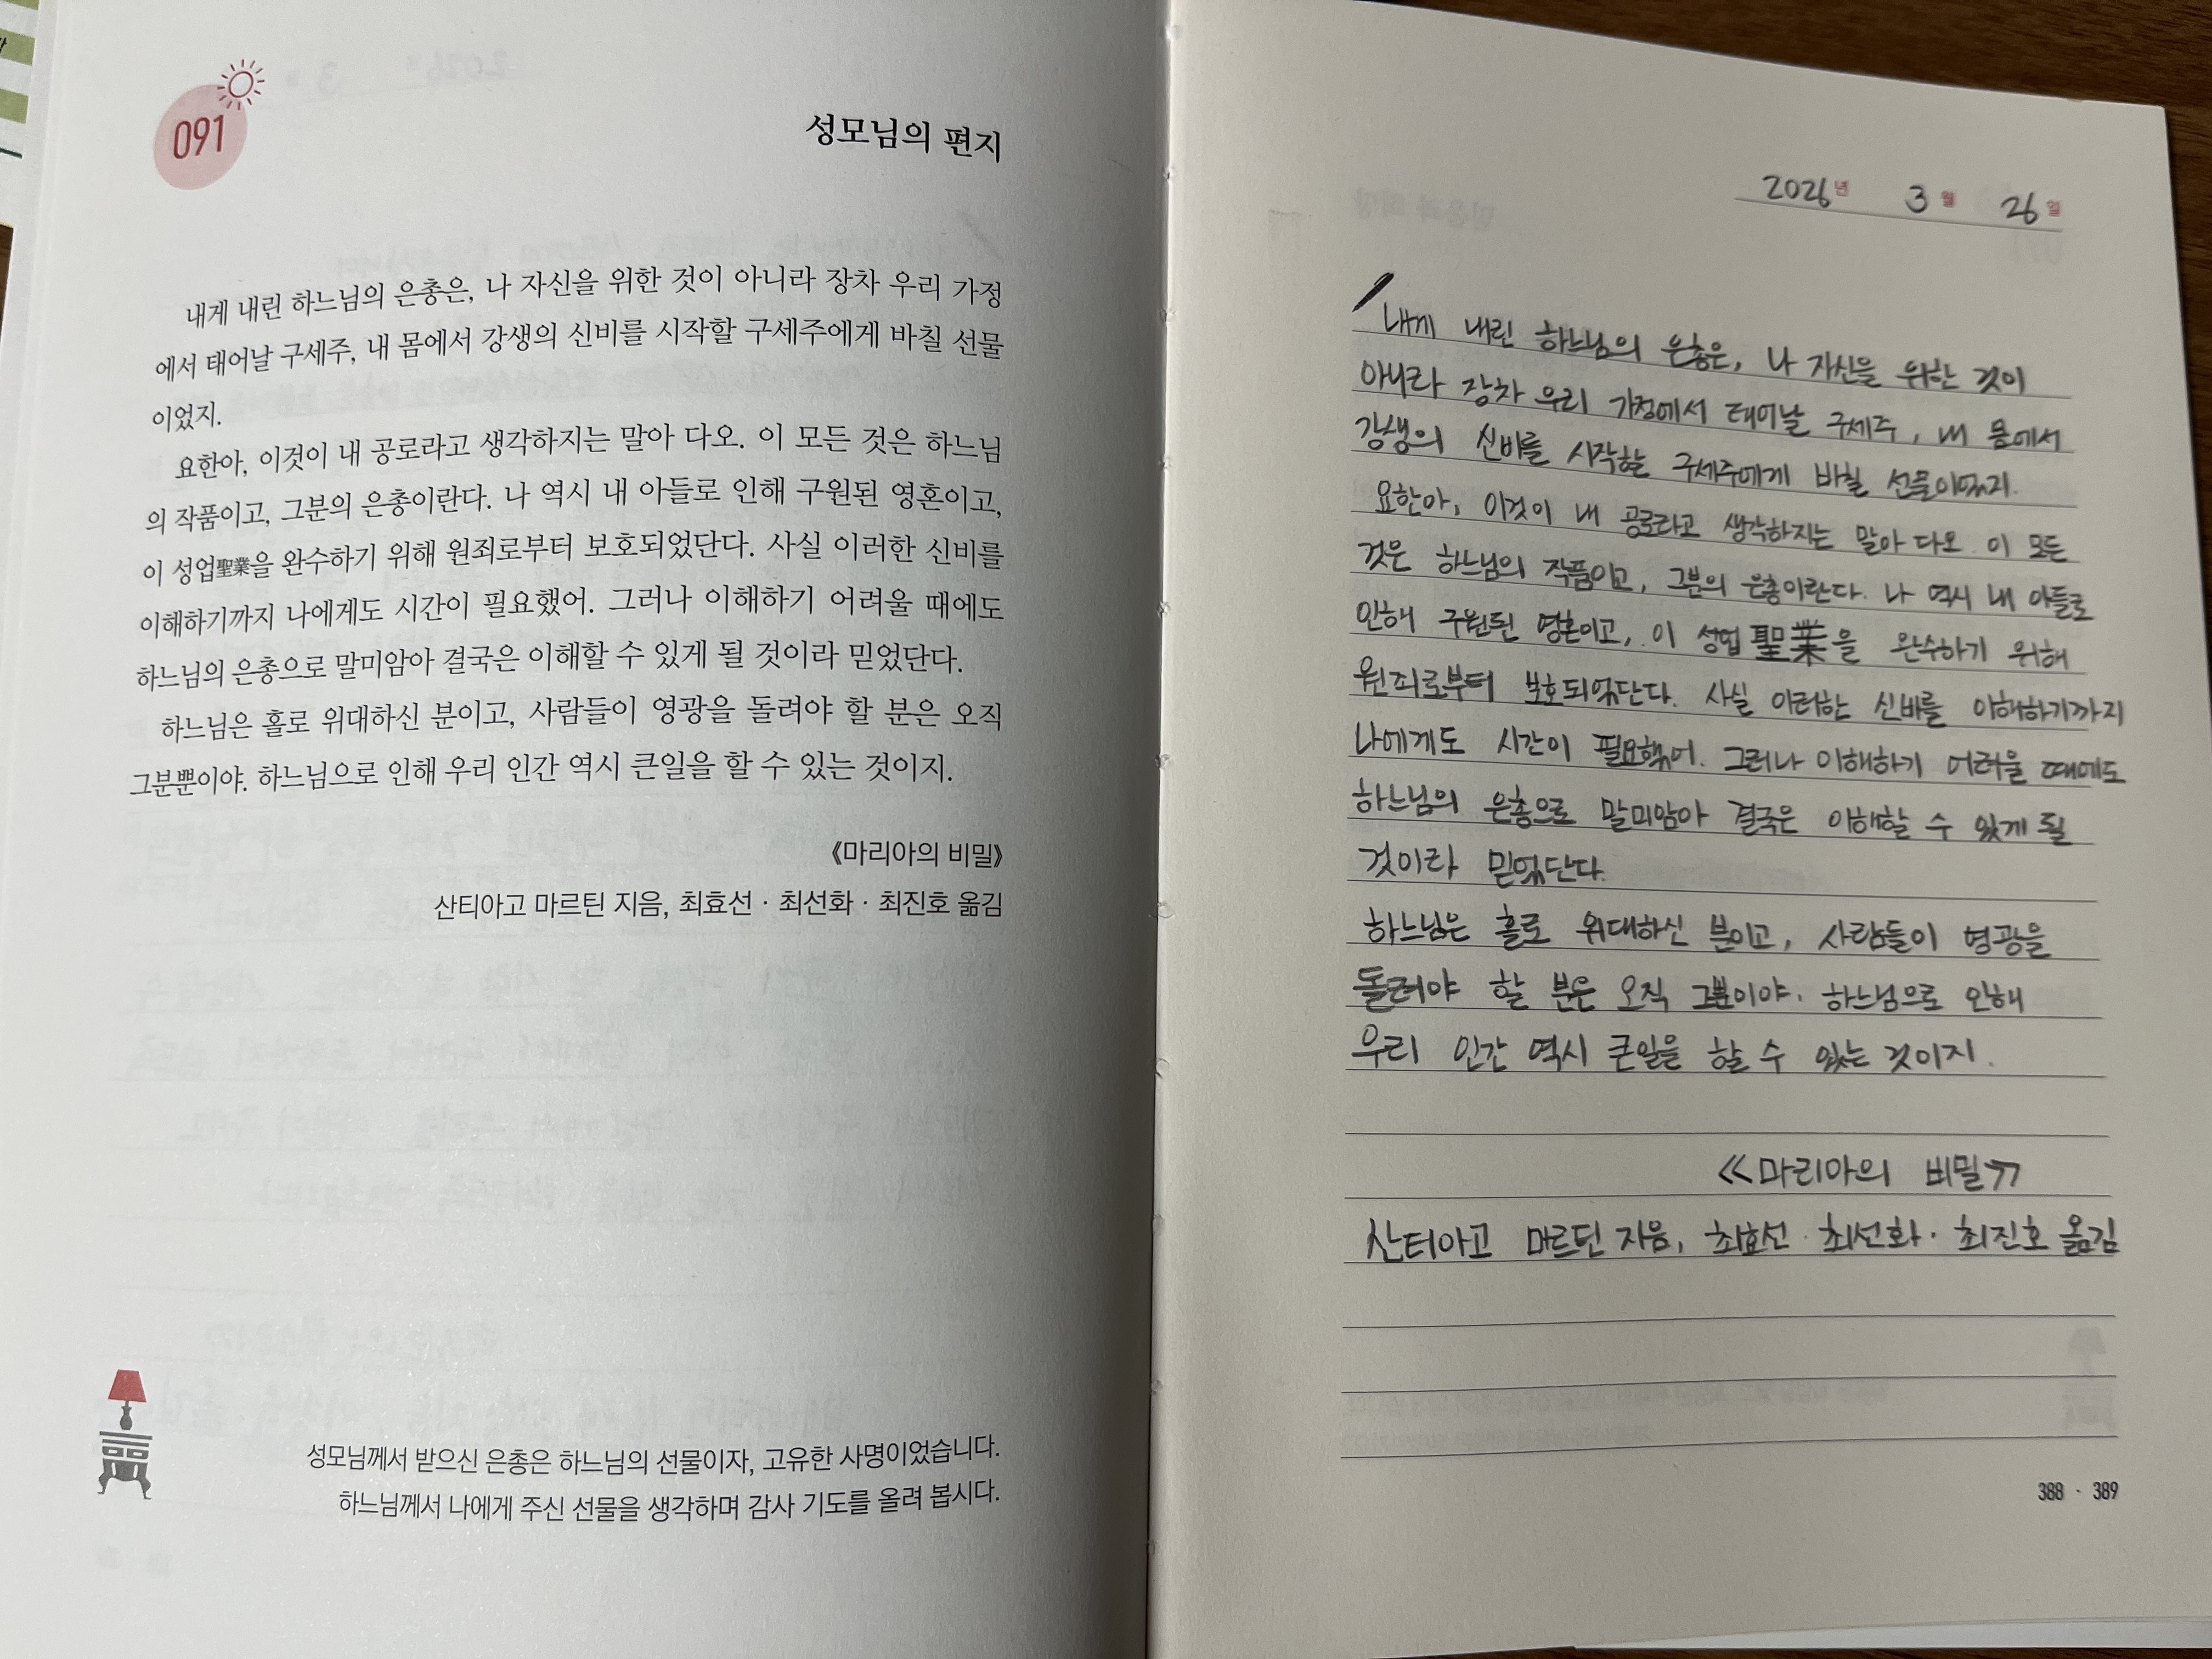 091
성모님의 편지
내게 내린 하느님의 은총은, 나 자신을 위한 것이 아니라 장차 우리 가정
에서 태어날 구세주, 내 몸에서 강생의 신비를 시작할 구세주에게 바칠 선물
이었지.
요한아, 이것이 내 공로라고 생각하지는 말아 다오. 이 모든 것은 하느님
의 작품이고, 그분의 은총이란다. 나 역시 내 아들로 인해 구원된 영혼이고,
이 성업聖業을 완수하기 위해 원죄로부터 보호되었단다. 사실 이러한 신비를
이해하기까지 나에게도 시간이 필요했어. 그러나 이해하기 어려울 때에도
하느님의 은총으로 말미암아 결국은 이해할 수 있게 될 것이라 믿었단다.
하느님은 홀로 위대하신 분이고, 사람들이 영광을 돌려야 할 분은 오직
그분뿐이야. 하느님으로 인해 우리 인간 역시 큰일을 할 수 있는 것이지.
《마리아의 비밀》
산티아고 마르틴 지음, 최효선 · 최선화 · 최진호 옮김
성모님께서 받으신 은총은 하느님의 선물이자, 고유한 사명이었습니다.
하느님께서 나에게 주신 선물을 생각하며 감사 기도를 올려 봅시다.
2026년 3월 26일
내게 내린 하느님의 은총은, 나 자신을 위한 것이
아니라 장차 우리 가정에서 태어날 구세주, 내 몸에서
강생의 신비를 시작할 구세주에게 바칠 선물이었지.
요한아, 이것이 내 공로라고 생각하지는 말아 다오. 이 모든
것은 하느님의 작품이고, 그분의 은총이란다. 나 역시 내 아들로
인해 구원된 영혼이고, 이 성업聖業을 완수하기 위해
원죄로부터 보호되었단다. 사실 이러한 신비를 이해하기까지
나에게도 시간이 필요했어. 그러나 이해하기 어려울 때에도
하느님의 은총으로 말미암아 결국은 이해할 수 있게 될
것이라 믿었단다.
하느님은 홀로 위대하신 분이고, 사람들이 영광을
돌려야 할 분은 오직 그뿐이야. 하느님으로 인해
우리 인간 역시 큰일을 할 수 있는 것이지.
《마리아의 비밀》
산티아고 마르틴 지음, 최효선 · 최선화 · 최진호 옮김
388 · 389